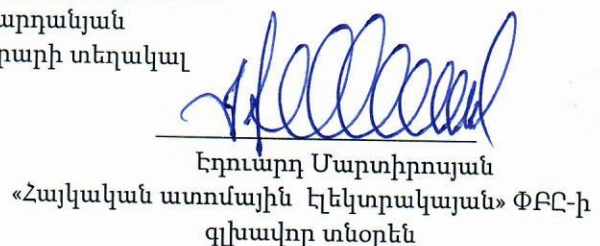 արդանյան
րարի տեղակալ
Էդուարդ Մարտիրոսյան
«Հայկական ատոմային էլեկտրակայան» ՓԲԸ-ի
գլխավոր տնօրեն